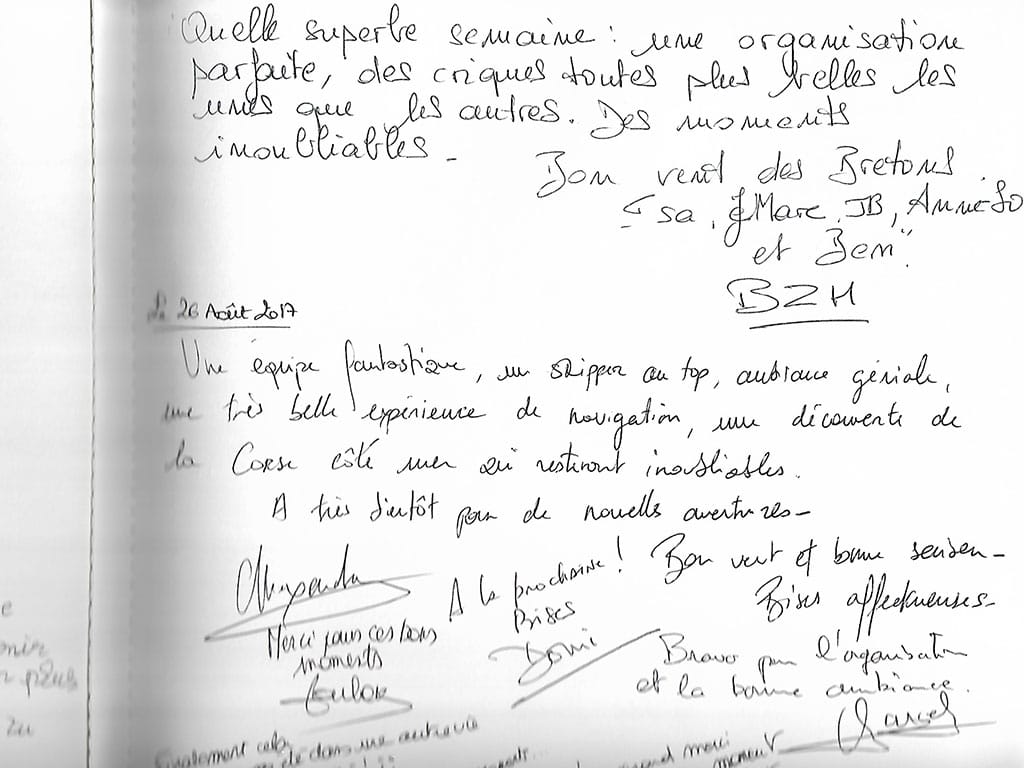 Quelle superbe semaine : une organisation
parfaite, des criques toutes plus belles les
unes que les autres. Des moments
inoubliables -
Bon vent des Bretons.
Isa, JMarc, JB, Anne-So
et Ben".
BZH
Le 26 Août 2017
Une équipe fantastique, un skipper au top, ambiance géniale,
une très belle expérience de navigation, une découverte de
la Corse côté mer qui resteront inoubliables.
A très bientôt pour de nouvelles aventures -
A la prochaine !
Bises
Domi
Bon vent et bonne
Bises affectueuses -
Merci pour ces bons
moments
Bravo pour l'organisation
et la bonne ambiance.
Marcel
e
plus
zu
dans une autre vie
merci
moment